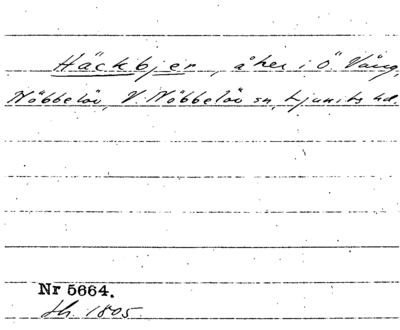 Häckbjer, åker i Ö. Vång,
Nöbbelöv, V. Nöbbelöv sn, Ljunits hd.
Nr 5664.
Sk. 1805